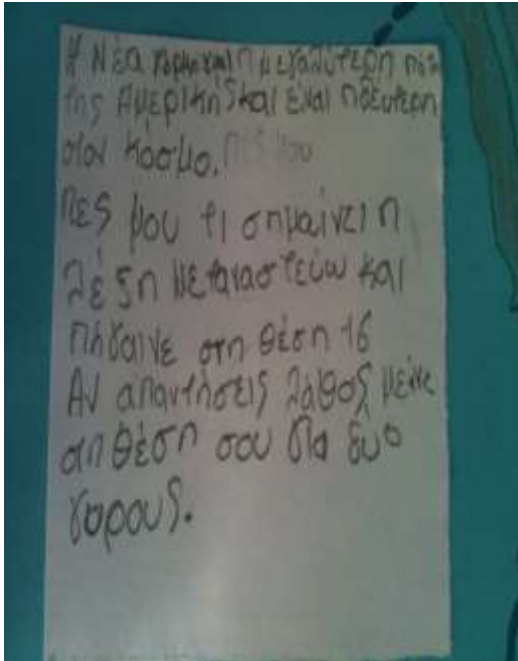 Η Νέα Υόρκη είναι η μεγαλύτερη πόλη
της Αμερικής και είναι η δεύτερη
στον κόσμο.
Πες μου τι σημαίνει η
λέξη μεταναστεύω και
πήγαινε στη θέση 16
Αν απαντήσεις λάθος μείνε
στη θέση σου για δυο
γύρους.